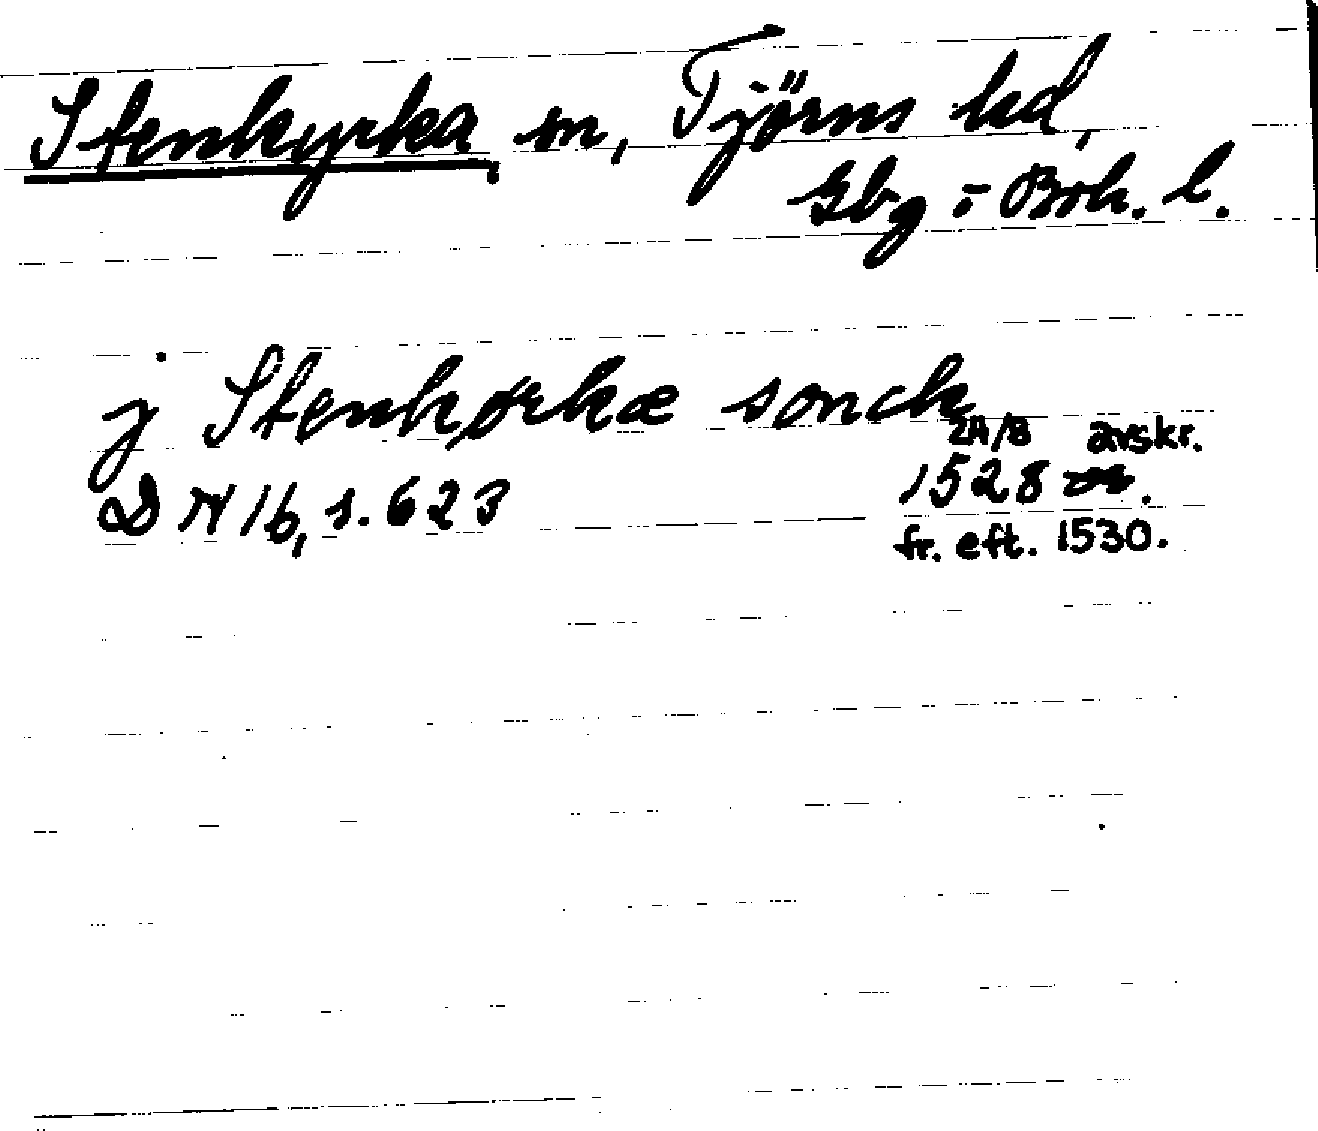 Stenkyrka, sn, Tjörns hd,
Gbg o Boh. l.
j Stenkørkæ sonck
24/8 avskr.
DN 16, s. 623 1528
fr. eft. 1530.